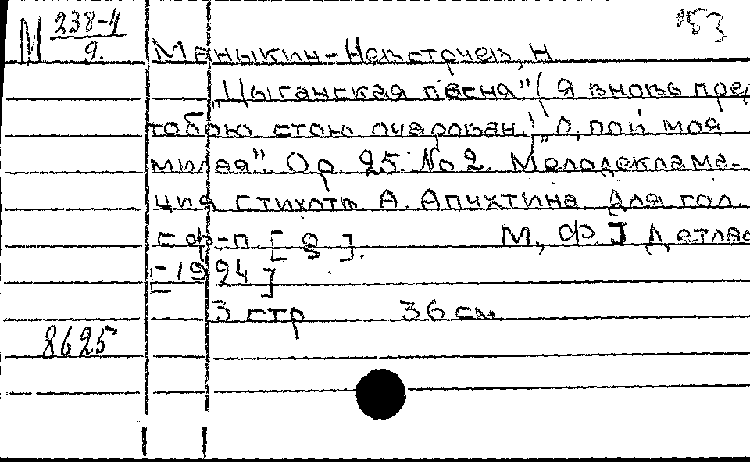 М 238-4/9. 153
Маныкин-Невструев, Н
„Цыганская песня" (Я вновь пред
тобою стою очарован.) „О, пой моя
милая". Ор. 25. No 2. Мелодеклама-
ция стихотв А. Апухтина для гол.
с ф-п [ ].
М,
-1924]
3 стр 36 см.
8625